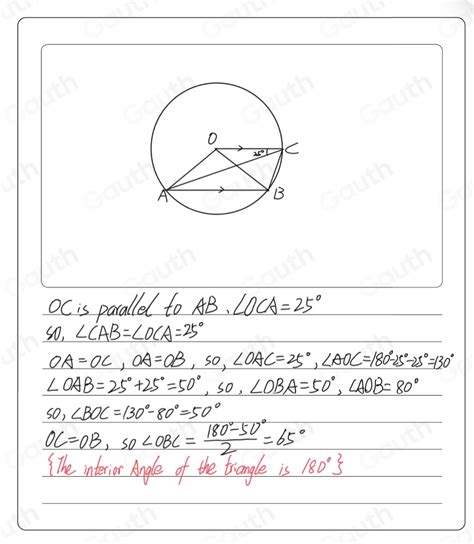 O
25°
C
A
B
OC is parallel to AB, ∠OCA=25°
so, ∠CAB=∠OCA=25°
OA=OC, OA=OB, so, ∠OAC=25°, ∠AOC=180°-25°-25°=130°
∠OAB=25°+25°=50°, so, ∠OBA=50°, ∠AOB=80°
so, ∠BOC=130°-80°=50°
OC=OB, so ∠OBC = (180°-50°)/2 = 65°
{The interior Angle of the triangle is 180°}
Gauth